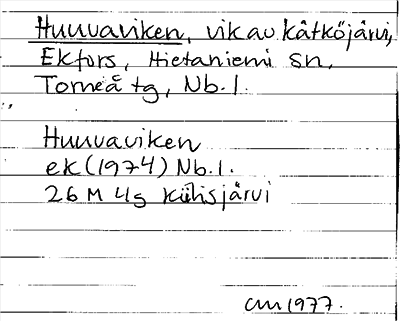 Huuvaviken, vik av Kätköjärvi,
Ekfors, Hietaniemi sn,
Torneå tg, Nb. l.
Huuvaviken
ek (1974) Nb. l.
26 M 4g Kiilisjärvi
1977.